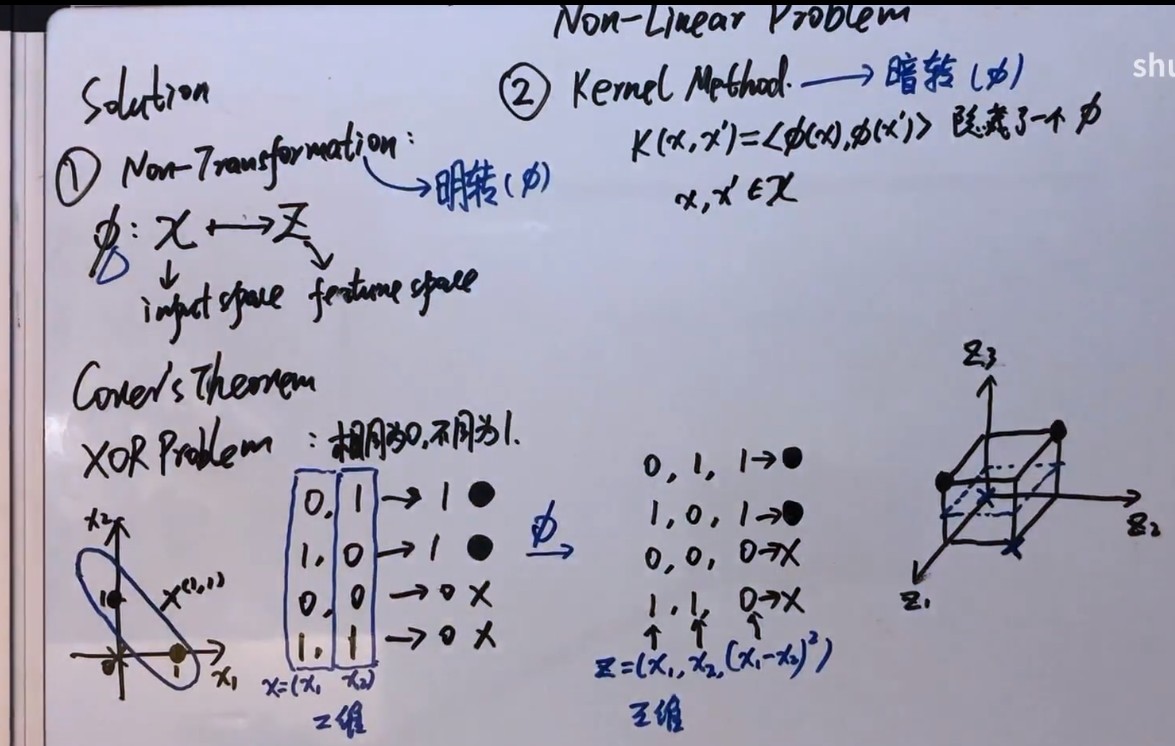 Non-Linear Problem
shu
Solution
① Non-Transformation:
明转(φ)
φ: X ⟼ Z
input space feature space
② Kernel Method. → 暗转(φ)
K(x,x')=<φ(x),φ(x')> 隐藏了一个φ
x,x'∈X
Cover's Theorem
XOR Problem :相同为0,不同为1.
0, 1 → 1 ●
1, 0 → 1 ●
0, 0 → 0 X
1, 1 → 0 X
x=(x₁ x₂)
二维
φ
0, 1, 1→●
1, 0, 1→●
0, 0, 0→X
1, 1, 0→X
z=(x₁, x₂, (x₁-x₂)²)
三维
x₂
1
X(1,1)
0
1
x₁
z₃
z₂
z₁